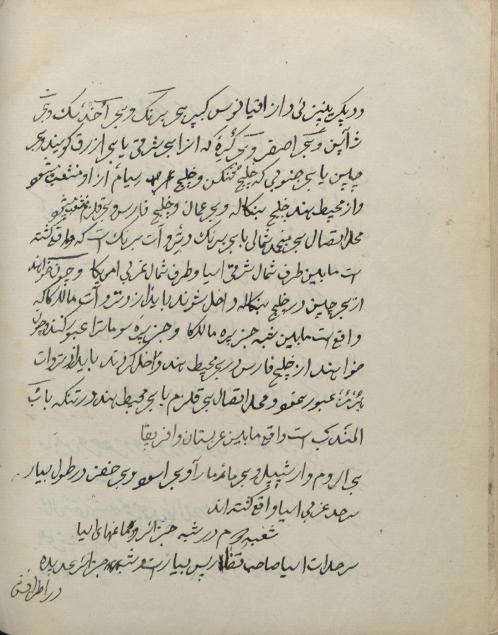 و دیگر بنین ئی دار از اقیانوس کبیر بحر برنگ و بحر آختسک و بحر
ژاپن و بحر اصفر و بحر کُره که از ابحر شرقی یا بحر ازرق گویند و بحر
چین یا بحر جنوبی که خلیج تنکن و خلیج سیام از او منشعب میشو
و از محیط هند خلیج بنگاله و بحر عمان و خلیج فارس و بحر قلزم منشعب میشو
محل اتصال بحر منجمد شمالی با بحر برنگ در درو آت برنگ است که واقع گشته
است ما بین طرف شمال شرقی اسیا و طرف شمال غربی امریکا و چون خواهند
از بحر چین در خلیج بنگاله داخل شوند باید از در و آت مالاکا که
واقع است ما بین شبه جزیره مالاکا و جزیره سوماترا عبور کنند و چون
خواهند از خلیج فارس در بحر محیط هند داخل گردند باید از در وات
هرمز عبور نمود و محل اتصال بحر قلزم با بحر محیط هند در تنکه باب
المندب است واقع ما بین عربستان و افریقا
بحر روم و ارشپیل و بحر مارمارا و بحر اسود و بحر خضر در طول بسیار
سرحد غربی اسیا واقع گشته اند
شعبه در شبه جزائر و دماغهای اسیا
سرحدات اسیا صاحب بسیار است و شبه جزائر عدیده
در اطراف